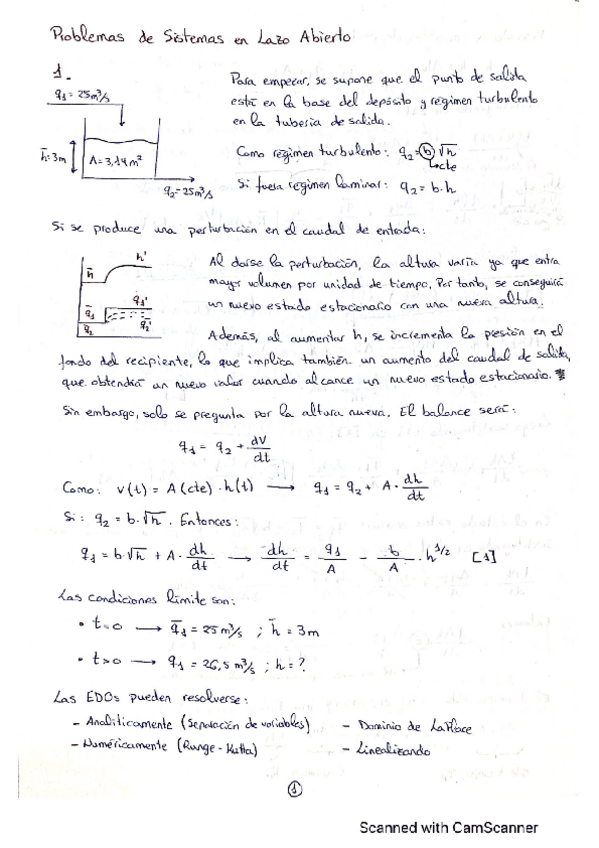 Problemas de Sistemas en Lazo Abierto
1.
q₁ = 25m³/s
h̄=3m
A=3,14m²
q₂=25m³/s
Para empezar, se supone que el punto de salida
está en la base del depósito y régimen turbulento
en la tubería de salida.
Como régimen turbulento: q₂=b√h
→cte
Si fuera régimen laminar: q₂=b·h
Si se produce una perturbación en el caudal de entrada:
h̄
h'
q̄₁
q₁'
q̄₂
q₂'
Al darse la perturbación, la altura varía ya que entra
mayor volumen por unidad de tiempo. Por tanto, se conseguirá
un nuevo estado estacionario con una nueva altura.
Además, al aumentar h, se incrementa la presión en el
fondo del recipiente, lo que implica también un aumento del caudal de salida,
que obtendrá un nuevo valor cuando alcance un nuevo estado estacionario.
Sin embargo, solo se pregunta por la altura nueva. El balance será:
q₁ = q₂ + dV/dt
Como: V(t) = A(cte)·h(t) → q₁ = q₂ + A·dh/dt
Si: q₂ = b·√h. Entonces:
q₁ = b·√h + A·dh/dt → dh/dt = q₁/A - b/A·h^1/2 [1]
Las condiciones límite son:
• t=0 → q̄₁ = 25m³/s ; h̄ = 3m
• t>0 → q₁ = 26,5m³/s ; h = ?
Las EDOs pueden resolverse:
- Analíticamente (Separación de variables) - Dominio de LaPlace
- Numéricamente (Runge-Kutta) - Linealizando
1
Scanned with CamScanner